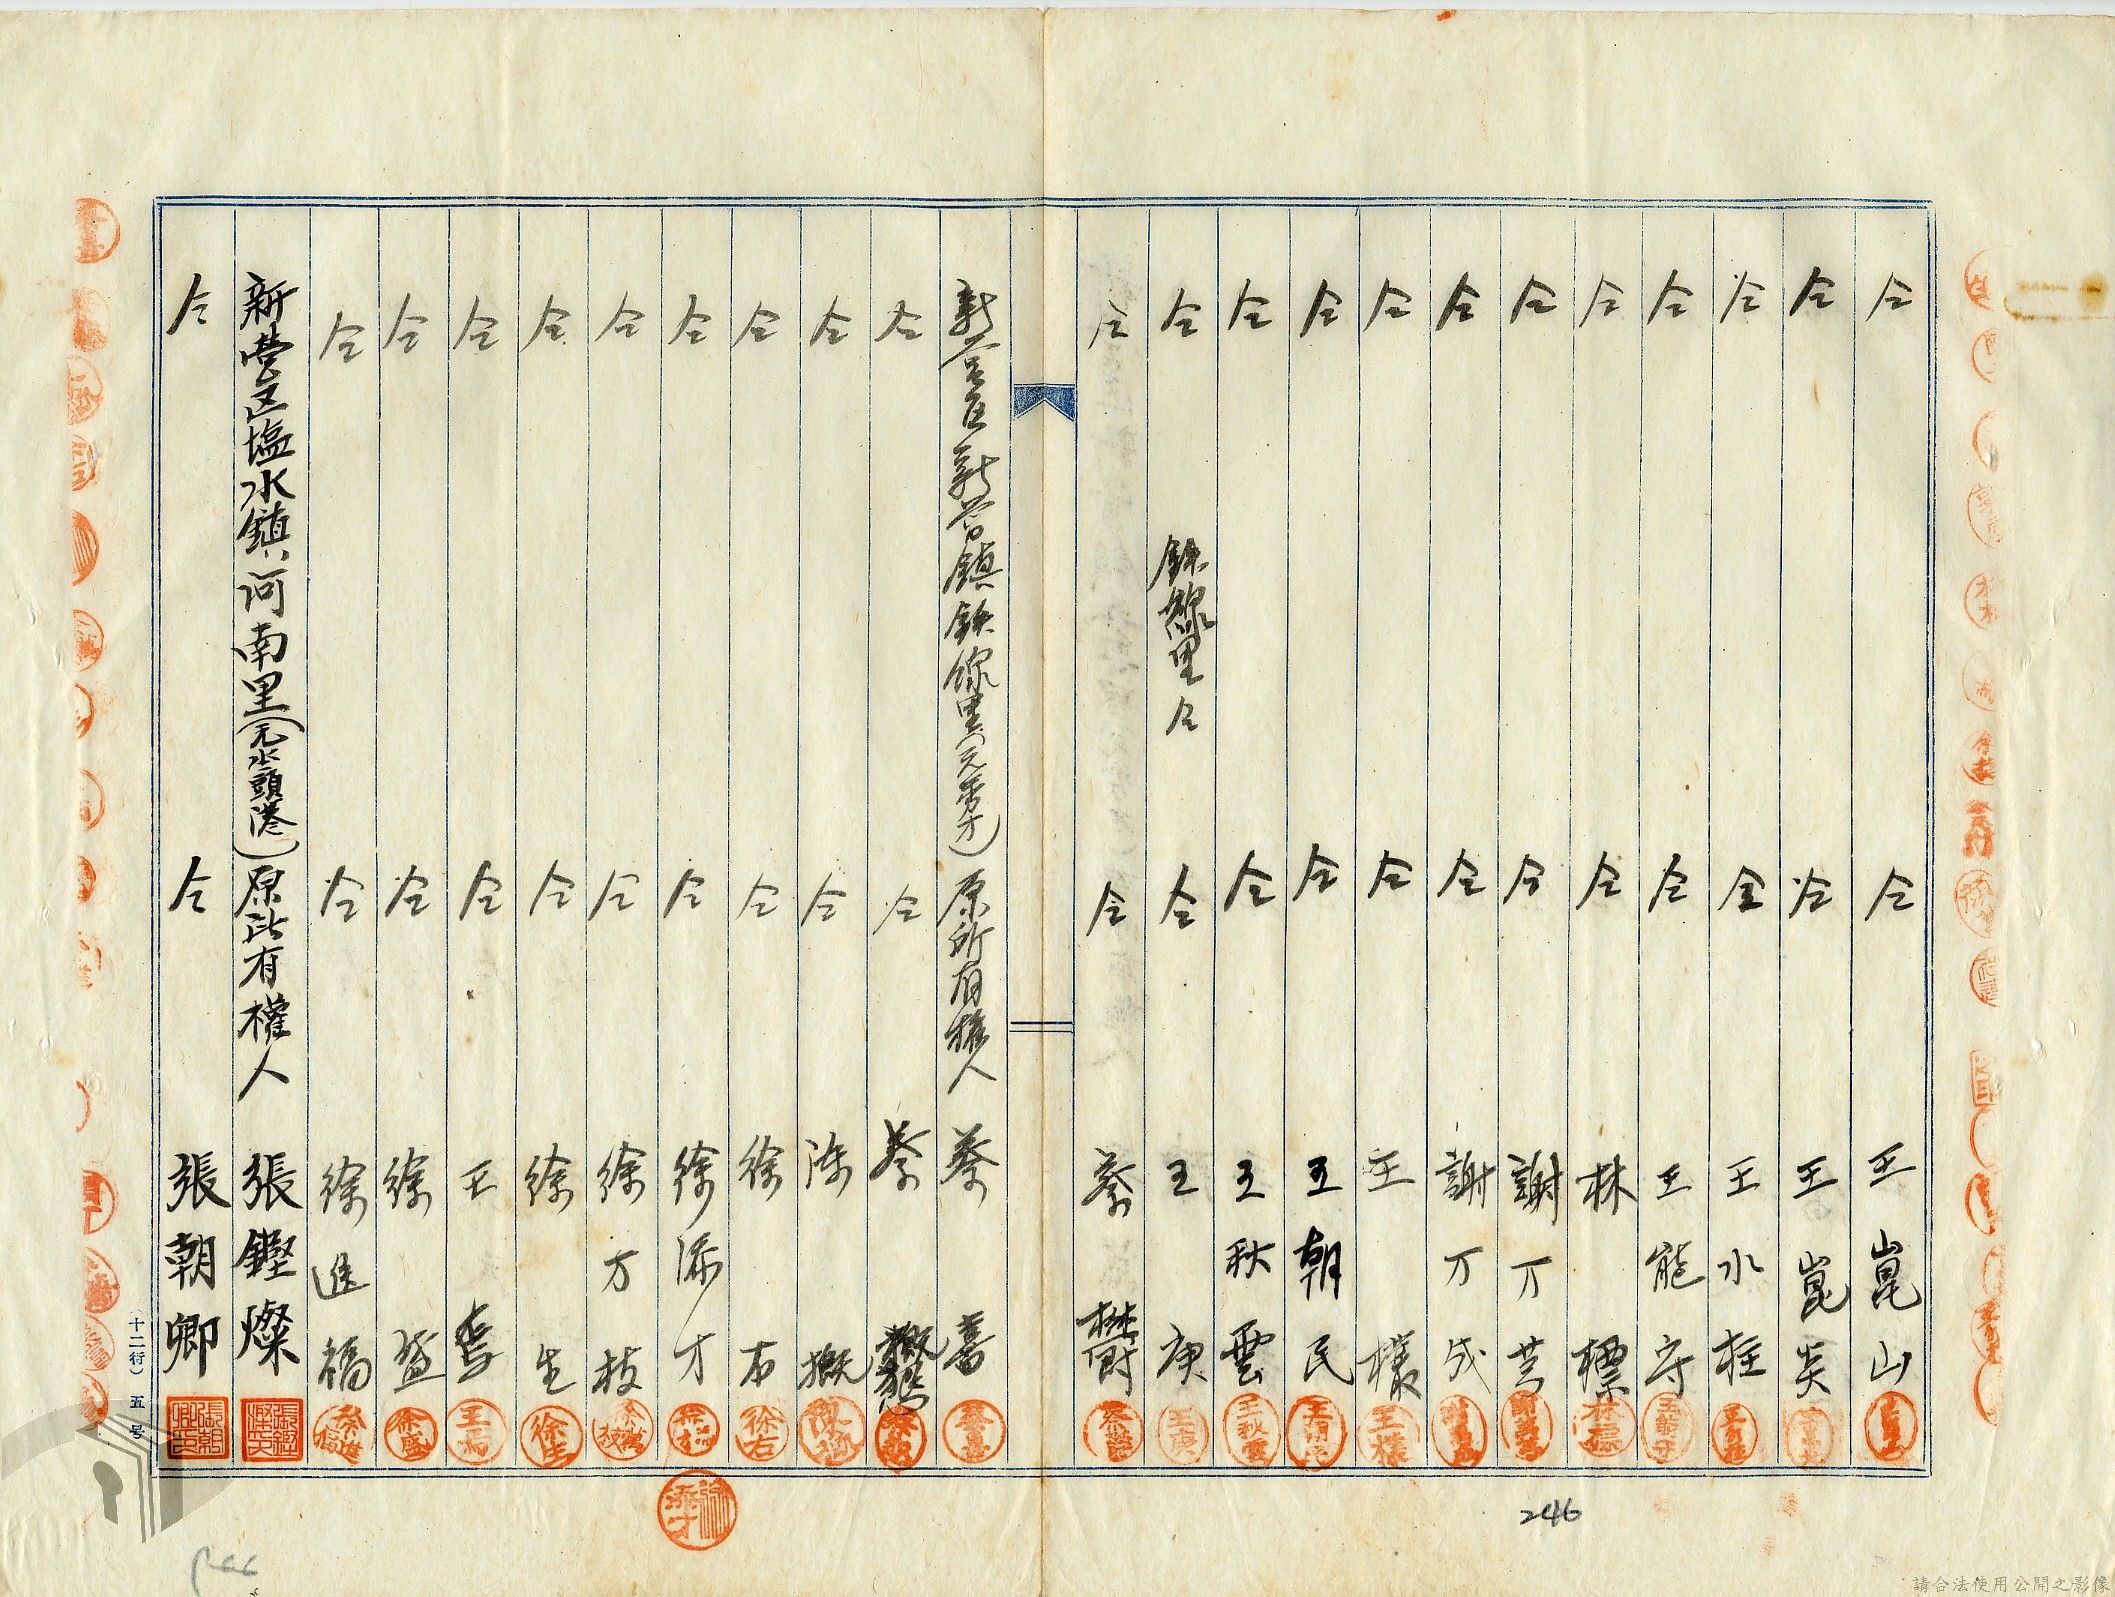 仝 仝 王崑山
仝 仝 王崑炎
仝 仝 王水柱
仝 仝 王能守
仝 仝 林標
仝 仝 謝丁芸
仝 仝 謝丁成
仝 仝 王樣
仝 仝 王朝民
仝 仝 王秋雲
仝 鉄線里仝 仝 王庚
仝 仝 蔡
新营区新营鎮鉄線里(元秀才)原所有權人 蔡喜
仝 仝 蔡
仝 仝 陳
仝 仝 徐右
仝 仝 徐添才
仝 仝 徐万枝
仝 仝 徐生
仝 仝 王
仝 仝 徐盛
仝 仝 徐進福
新营区塩水鎮河南里(元水頭港)原所有權人 張鏗燦
仝 仝 張朝卿
(十二行) 五号
添才
246
請合法使用公開之影像